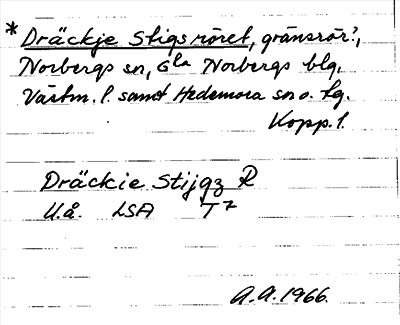 * Dräckje Stigsröret, gränsrör?,
Norbergs sn, Gla Norbergs blg,
Västm. l. samt Hedemora sn o. tg.
Kopp. l.
Dräckie Stijgz R
U.å. LSA T7
A.A. 1966.